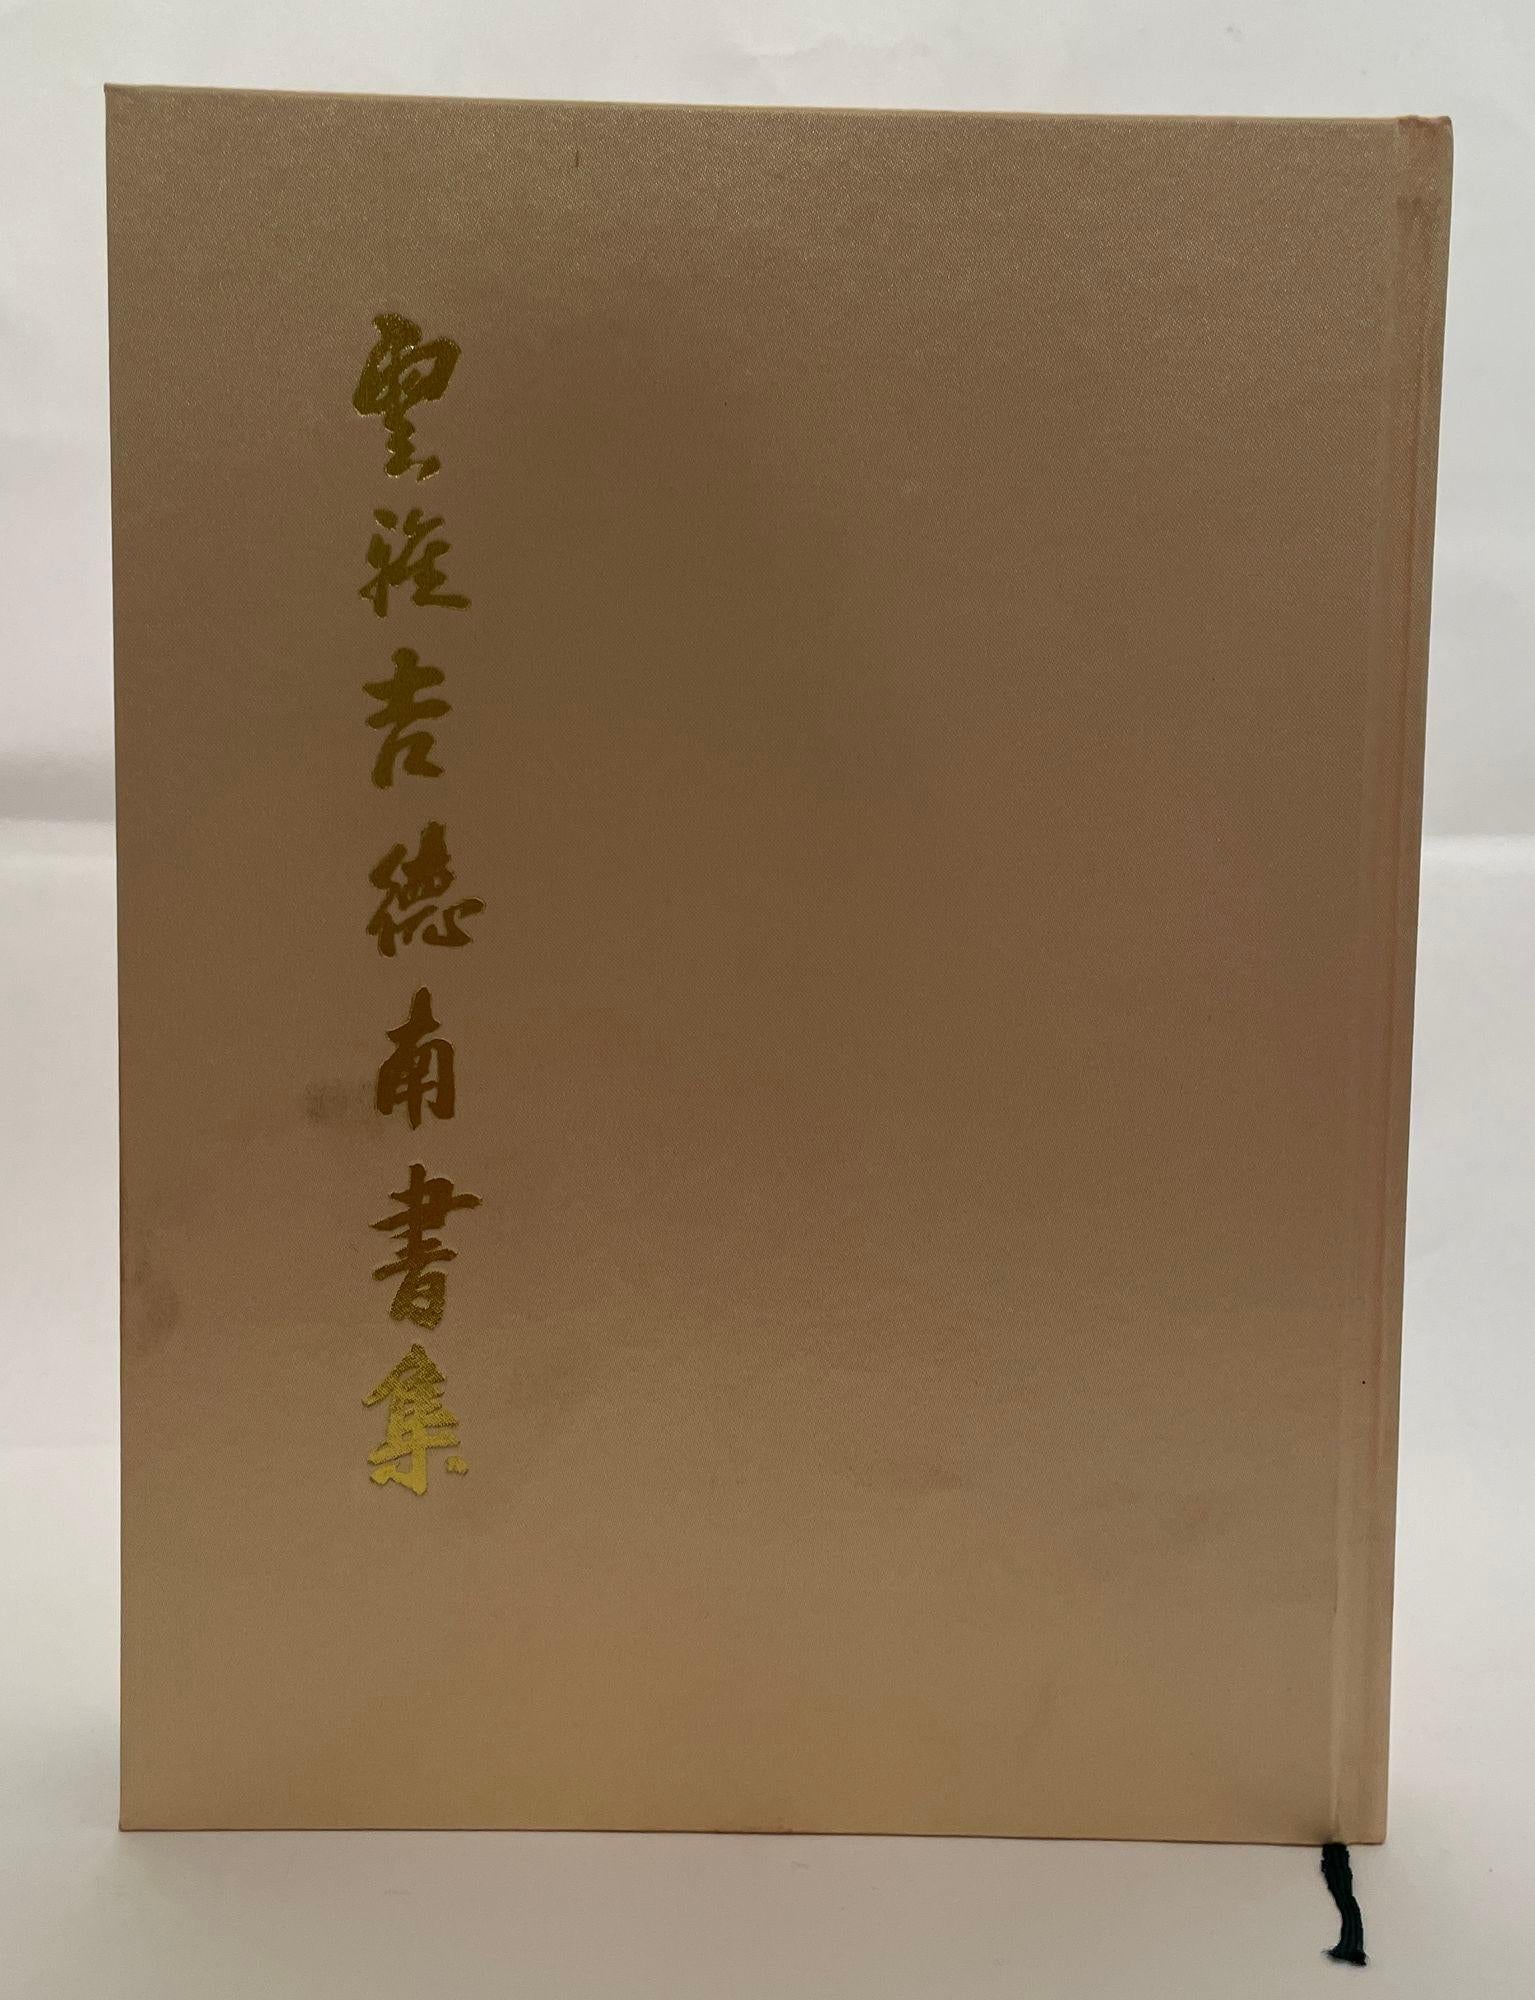 雲雅吉德南書集